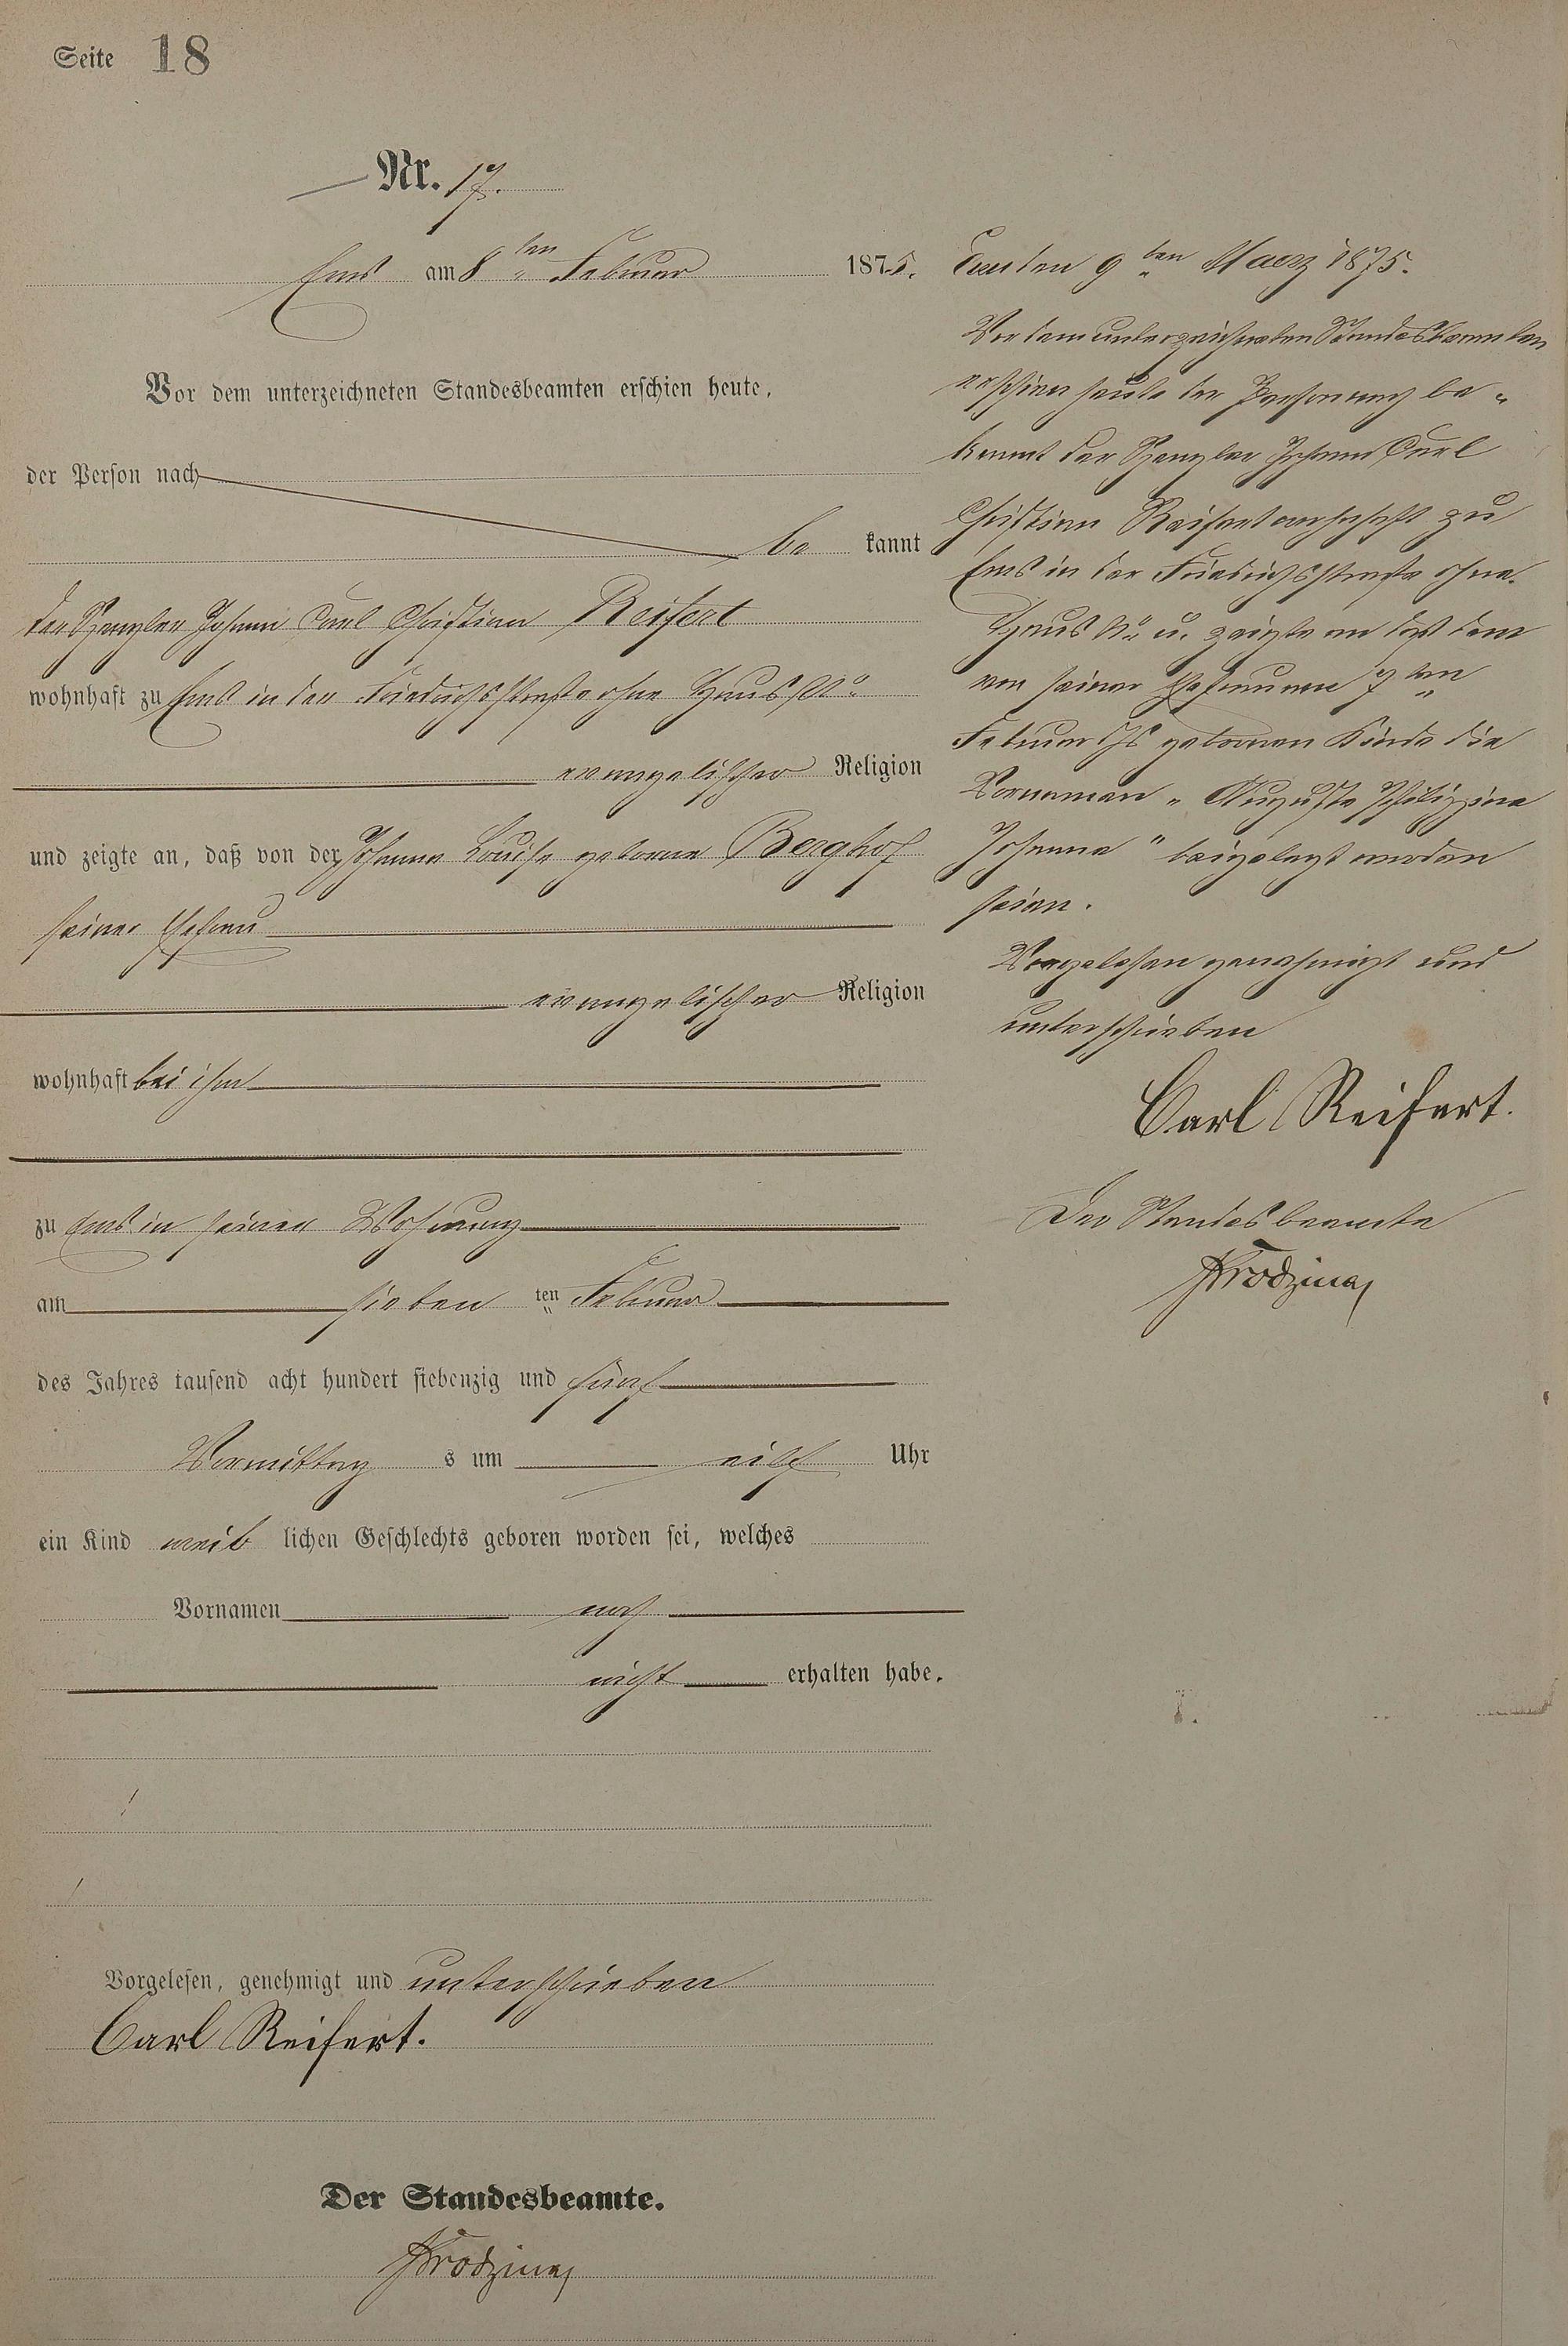 Seite 18
Nr. 17.
Ems am 8ten Februar 1875.
Vor dem unterzeichneten Standesbeamten erschien heute,
der Person nach
be kannt
der Spengler Johann Carl Christian Reifert
wohnhaft zu Ems in der Friedrichsstraße ohne Haus No
evangelischer Religion
und zeigte an, daß von der Johanna Louise geborene Berghof
seiner Ehefrau
evangelischer Religion
wohnhaft bei ihm
zu Ems in seiner Wohnung
am sieben ten Februar
des Jahres tausend acht hundert siebenzig und fünf
Vormittag s um eilf Uhr
ein Kind weib lichen Geschlechts geboren worden sei, welches
Vornamen noch
nicht erhalten habe.
Vorgelesen, genehmigt und unterschrieben
Carl Reifert.
Der Standesbeamte.
den 9ten Maerz 1875.
Vor dem unterzeichneten Standesbeamten
erschien heute der Person nach be-
kannt der Spengler Johann Carl
Christian Reifert wohnhaft zu
Ems in der Friedrichsstraße ohne
Haus No u. zeigte an daß dem
von seiner Ehefrau am 7ten
Februar geborenen Kinde die
Vornamen "Auguste Philippine
Johanna" beigelegt worden
seien.
Vorgelesen genehmigt und
unterschrieben
Carl Reifert.
Der Standesbeamte